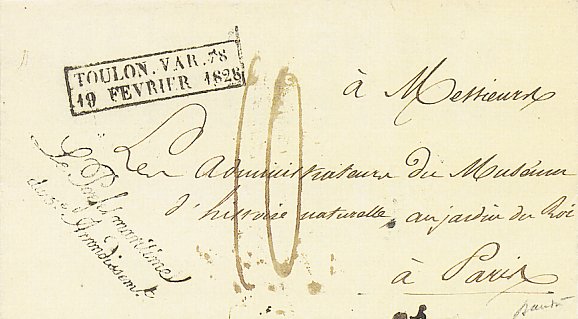 TOULON.VAR.78
19 FEVRIER 1828
à Messieurs
Les Administrateurs du Muséum
d'histoire naturelle, au jardin du Roi
à Paris
Le Préfet maritime
du 5e Arrondissemt
10